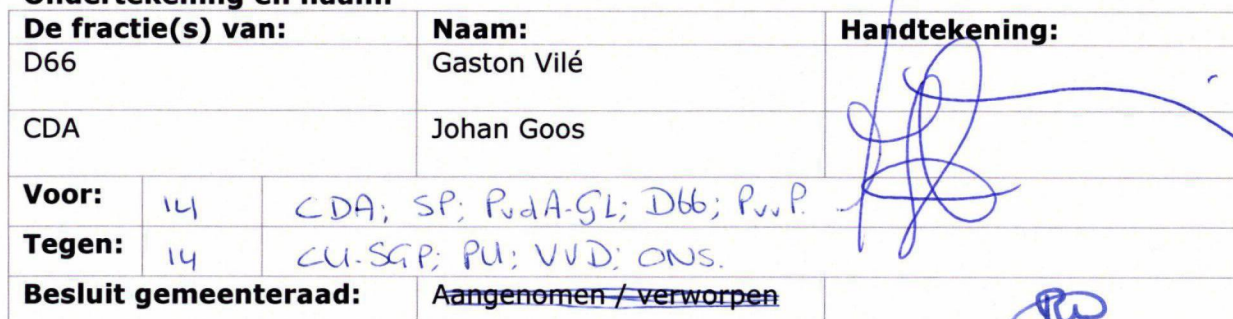 Ondertekening en naam:
De fractie(s) van: Naam: Handtekening:
D66 Gaston Vilé
CDA Johan Goos
Voor: 14 CDA; SP; PvdA-GL; D66; PvvP.
Tegen: 14 CU-SGP; PU; VVD; ONS.
Besluit gemeenteraad: Aangenomen / verworpen